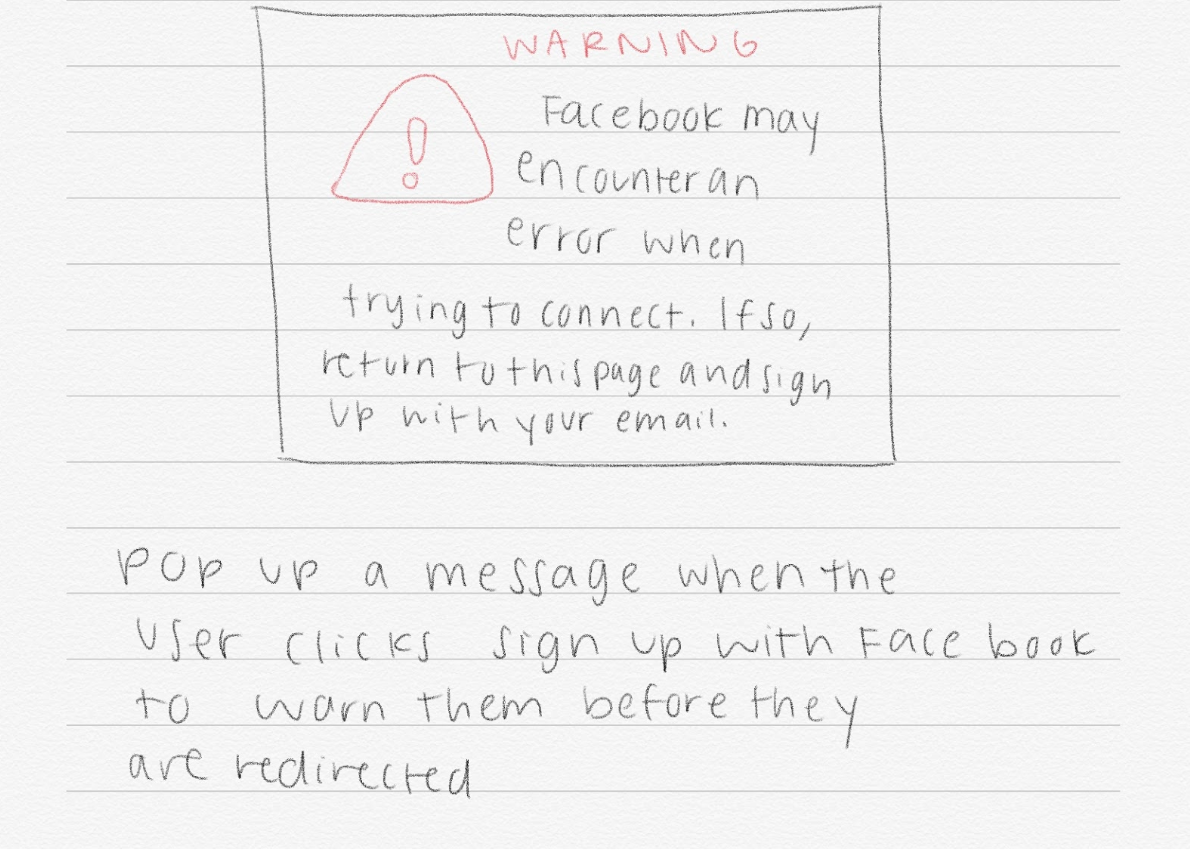 WARNING
Facebook may
encounter an
error when
trying to connect. If so,
return to this page and sign
up with your email.
POP up a message when the
user clicks sign up with Facebook
to warn them before they
are redirected